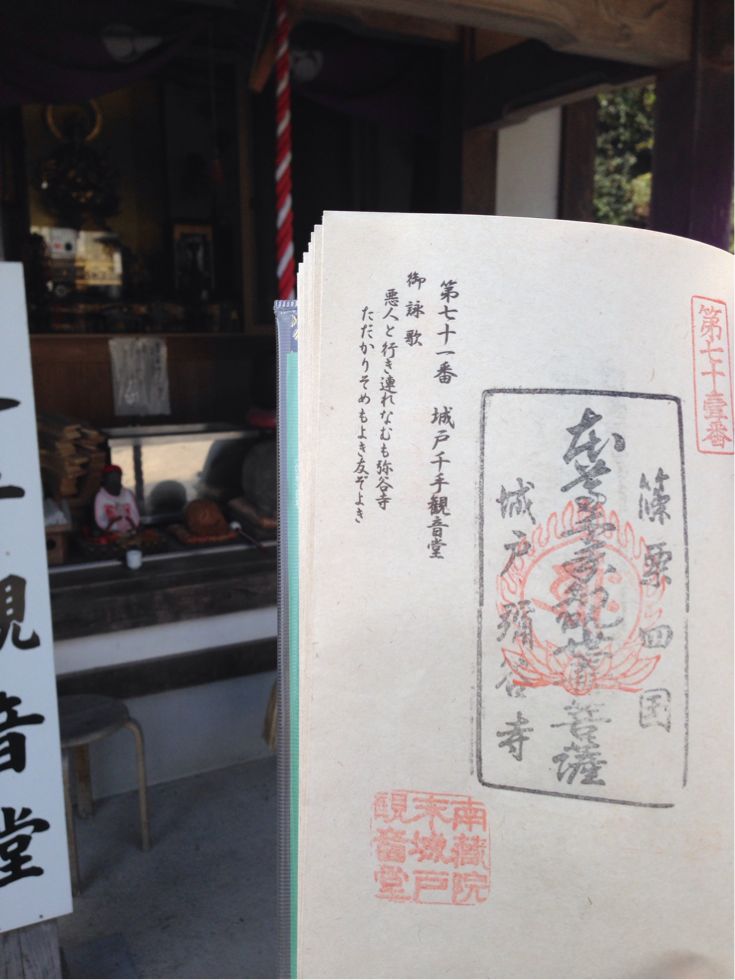 第七十壹番
篠栗四国
本尊千手観世音菩薩
城戸彌谷寺
第七十一番 城戸千手観音堂
御詠歌
悪人と行き連れなむも弥谷寺
ただかりそめもよき友ぞよき
南蔵院
末城戸
観音堂
千手観音堂